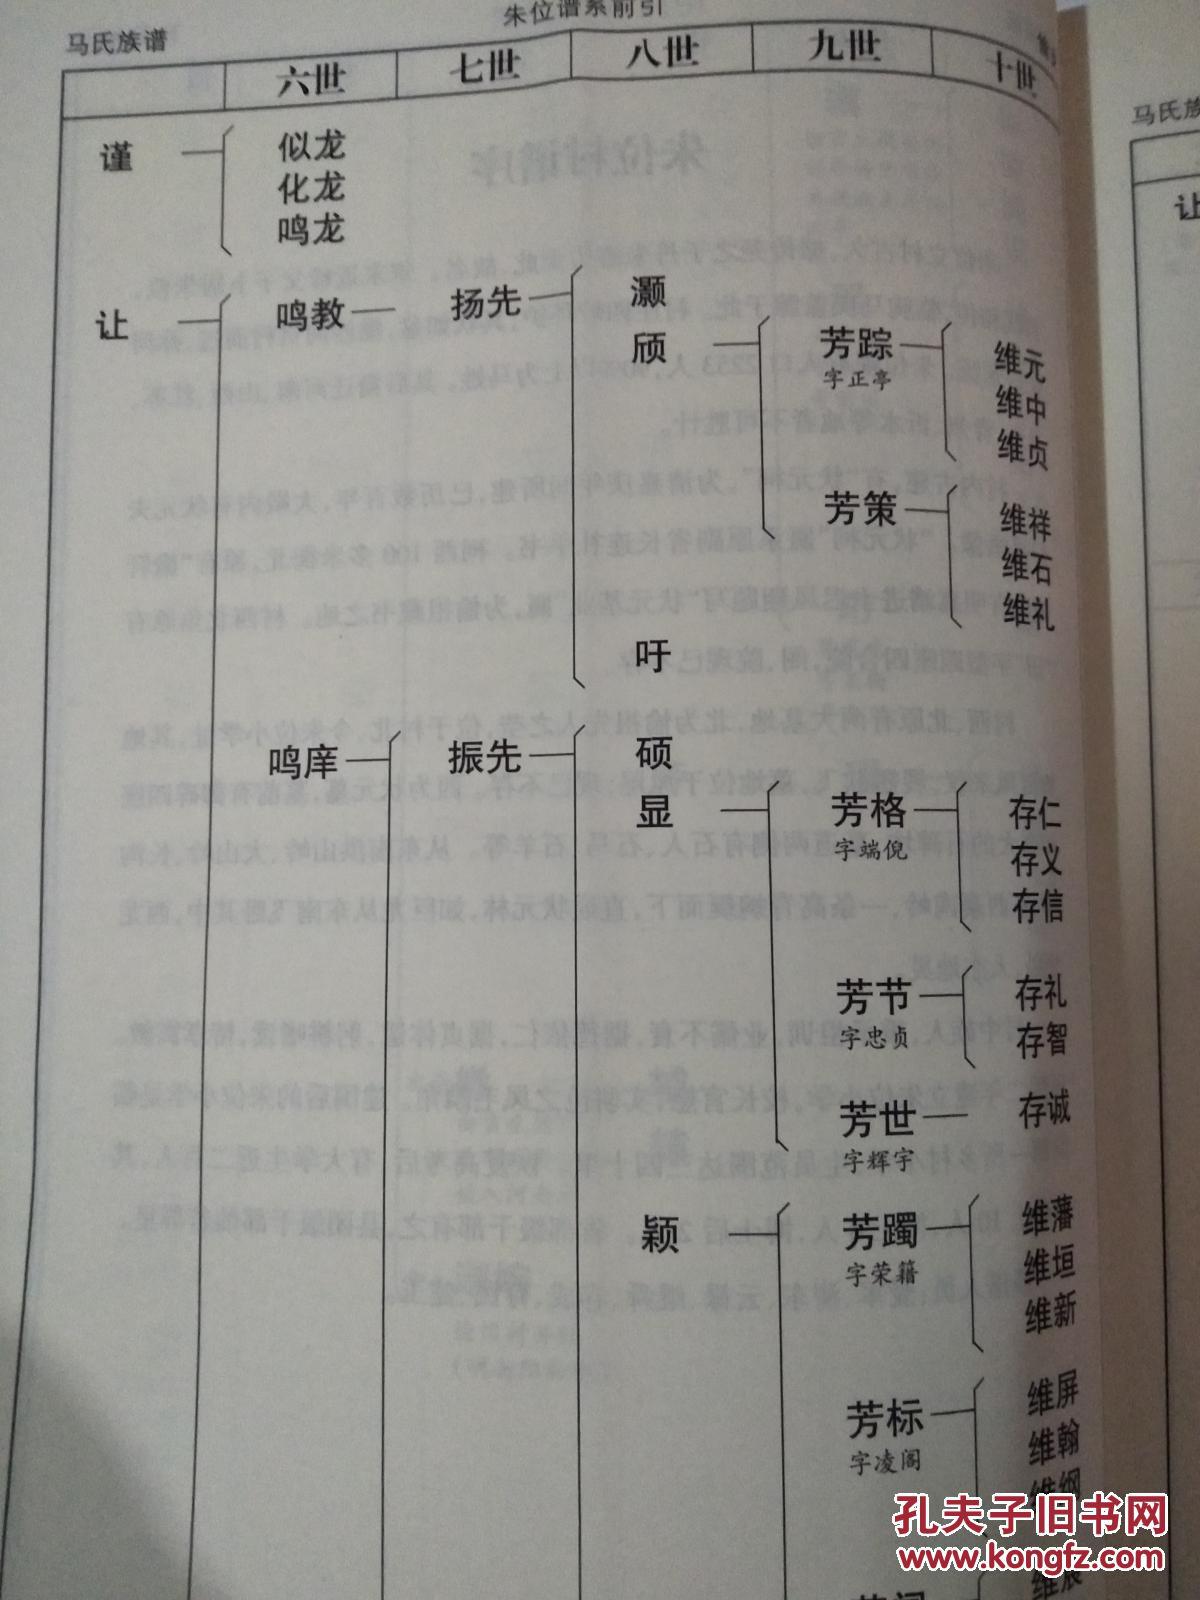 朱位谱系前引
马氏族谱
六世 七世 八世 九世 十世
谨 似龙
化龙
鸣龙
让 鸣教 扬先 灏
颀 芳踪 维元
字正亭 维中
维贞
芳策 维祥
维石
维礼
吁
鸣庠 振先 硕
显 芳格 存仁
字端倪 存义
存信
芳节 存礼
字忠贞 存智
芳世 存诚
字辉宇
颖 芳躅 维藩
字荣籍 维垣
维新
芳标 维屏
字凌阁 维翰
维纲
维宸
马氏族
让
孔夫子旧书网
www.kongfz.com